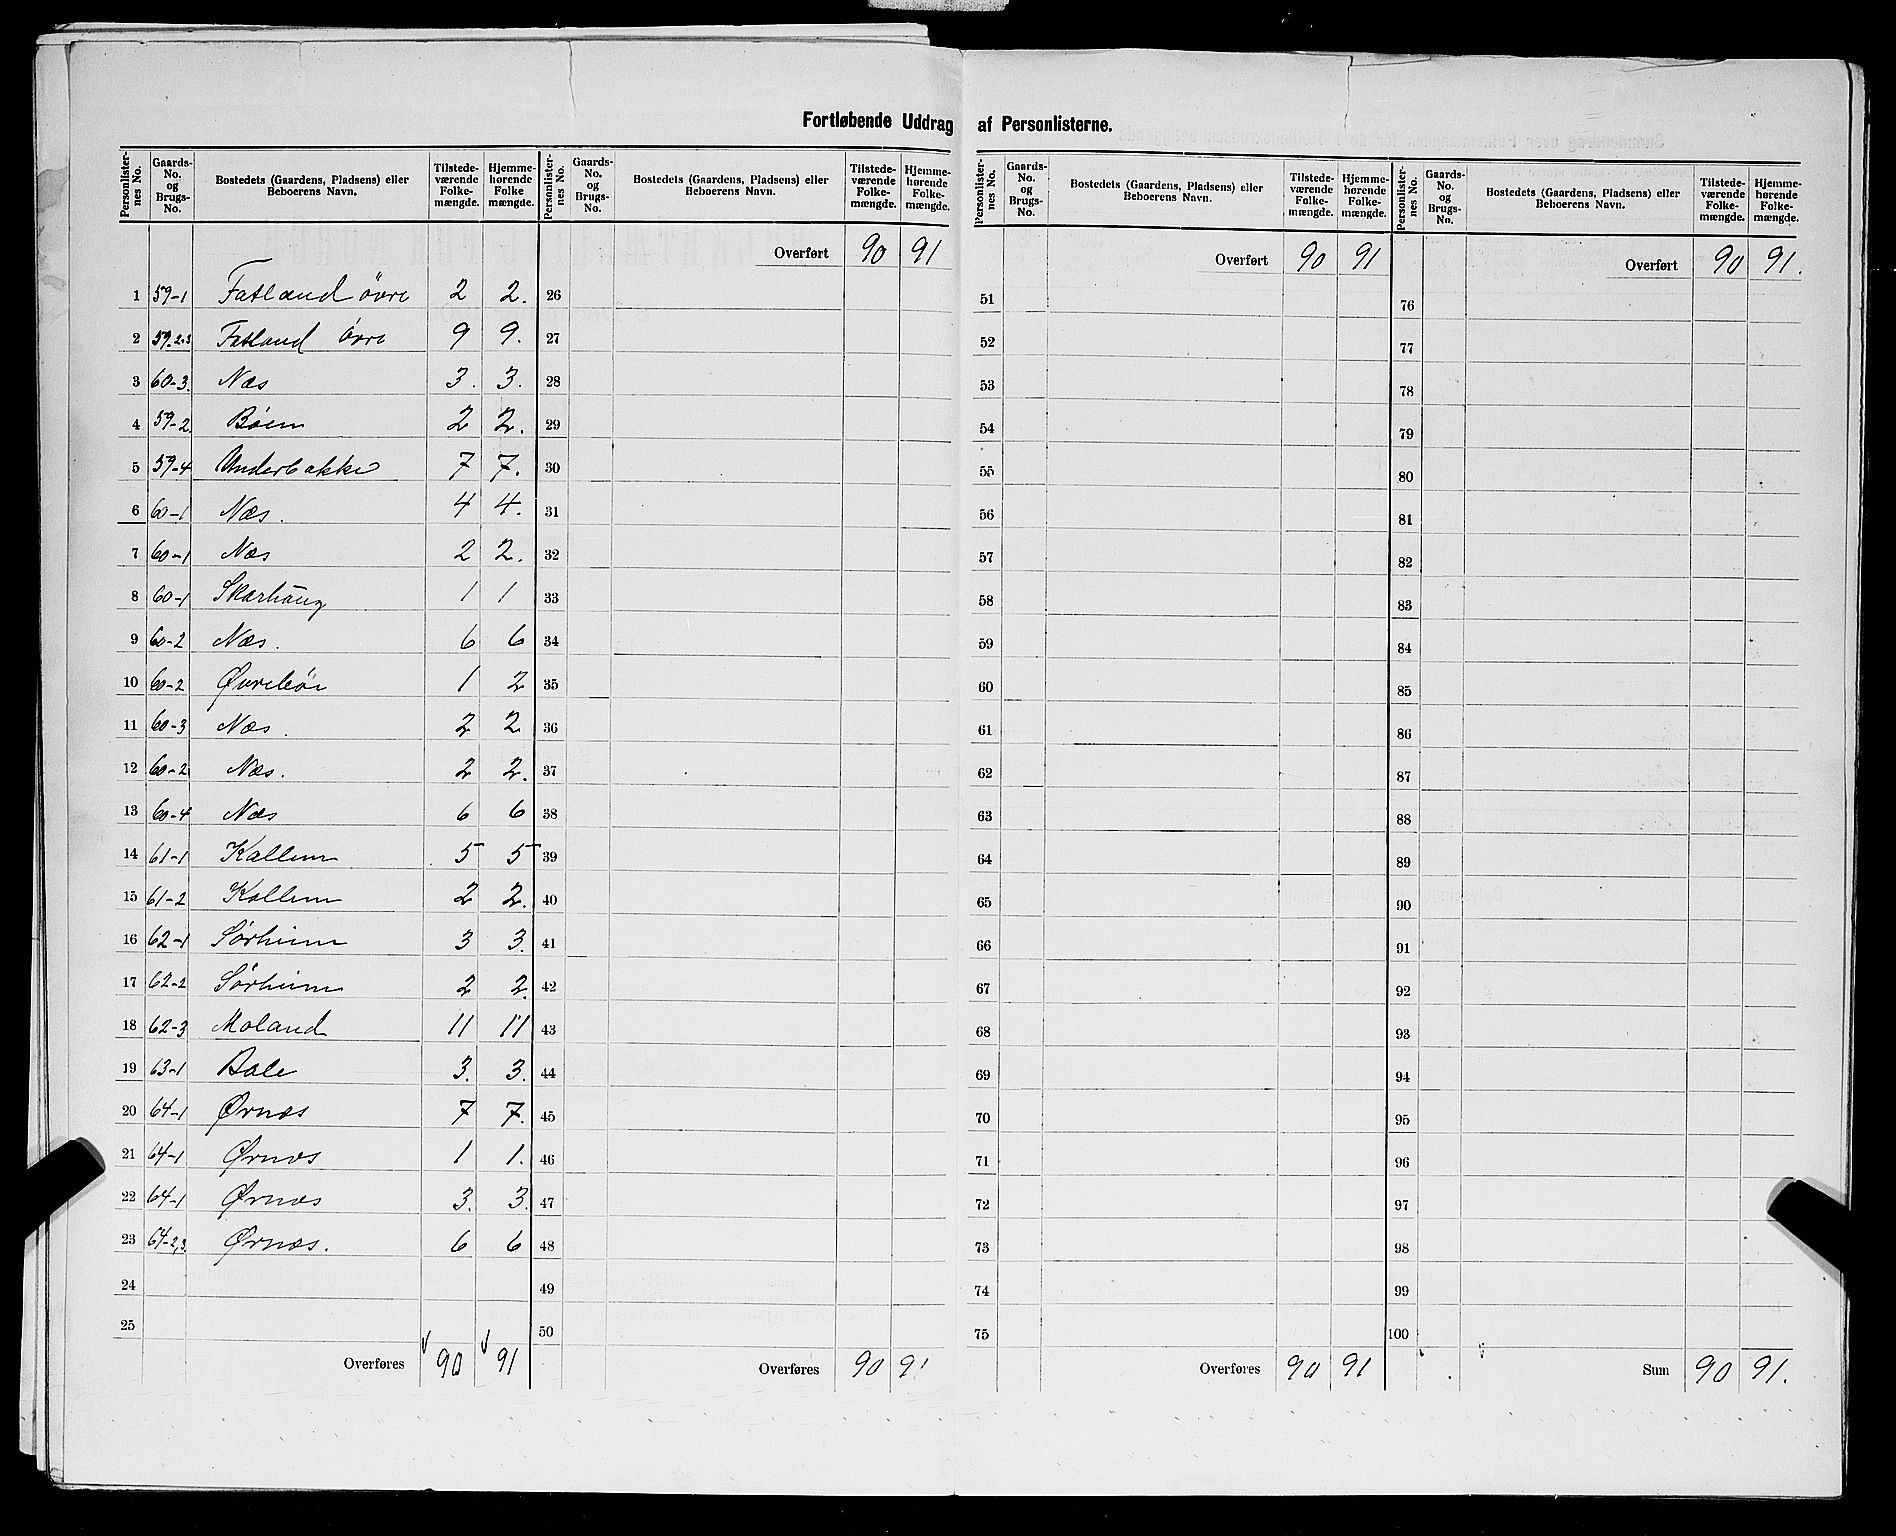 Fortløbende Uddrag af Personlisterne.
Personlister-nes No. | Gaards-No. og Brugs-No. | Bostedets (Gaardens, Pladsens) eller Beboerens Navn. | Tilstede-værende Folke-mængde. | Hjemme-hørende Folke mængde.
1 59-1 Fatland övre 2 2.
2 59.2.3 Fatland övre 9 9.
3 60-3. Næs 3. 3.
4 59-2. Böen 2 2.
5 59-4 Underbakke 7 7.
6 60-1 Næs. 4 4.
7 60-1 Næs 2 2.
8 60-1 Skarhaug 1 1
9 60-2 Næs. 6 6
10 60-2 Øvreböe 1 2
11 60-3 Næs. 2 2
12 60-2 Næs. 2 2.
13 60-4 Næs 6 6
14 61-1 Kallem 5 5
15 61-2 Kallem 2 2.
16 62-1 Sørheim 3 3.
17 62-2 Sørheim 2 2.
18 62-3 Moland 11 11
19 63-1 Bale 3. 3.
20 64-1 Ørnæs 7 7.
21 64-1 Ørnæs 1 1.
22 64-1 Ørnæs 3. 3.
23 64-2,3. Ørnæs. 6 6
24
25
Overføres 90 91
Personlister-nes No. | Gaards-No. og Brugs-No. | Bostedets (Gaardens, Pladsens) eller Beboerens Navn. | Tilstede-værende Folke-mængde. | Hjemme-hørende Folke-mængde.
Overført 90 91
26
27
28
29
30
31
32
33
34
35
36
37
38
39
40
41
42
43
44
45
46
47
48
49
50
Overføres 90 91
Personlister-nes No. | Gaards-No. og Brugs-No. | Bostedets (Gaardens, Pladsens) eller Beboerens Navn. | Tilstede-værende Folke-mængde. | Hjemme-hørende Folke-mængde.
Overført 90 91
51
52
53
54
55
56
57
58
59
60
61
62
63
64
65
66
67
68
69
70
71
72
73
74
75
Overføres 90 91
Personlister-nes No. | Gaards-No. og Brugs-No. | Bostedets (Gaardens, Pladsens) eller Beboerens Navn. | Tilstede-værende Folke-mængde. | Hjemme-hørende Folke-mængde.
Overført 90 91.
76
77
78
79
80
81
82
83
84
85
86
87
88
89
90
91
92
93
94
95
96
97
98
99
100
Sum 90 91.